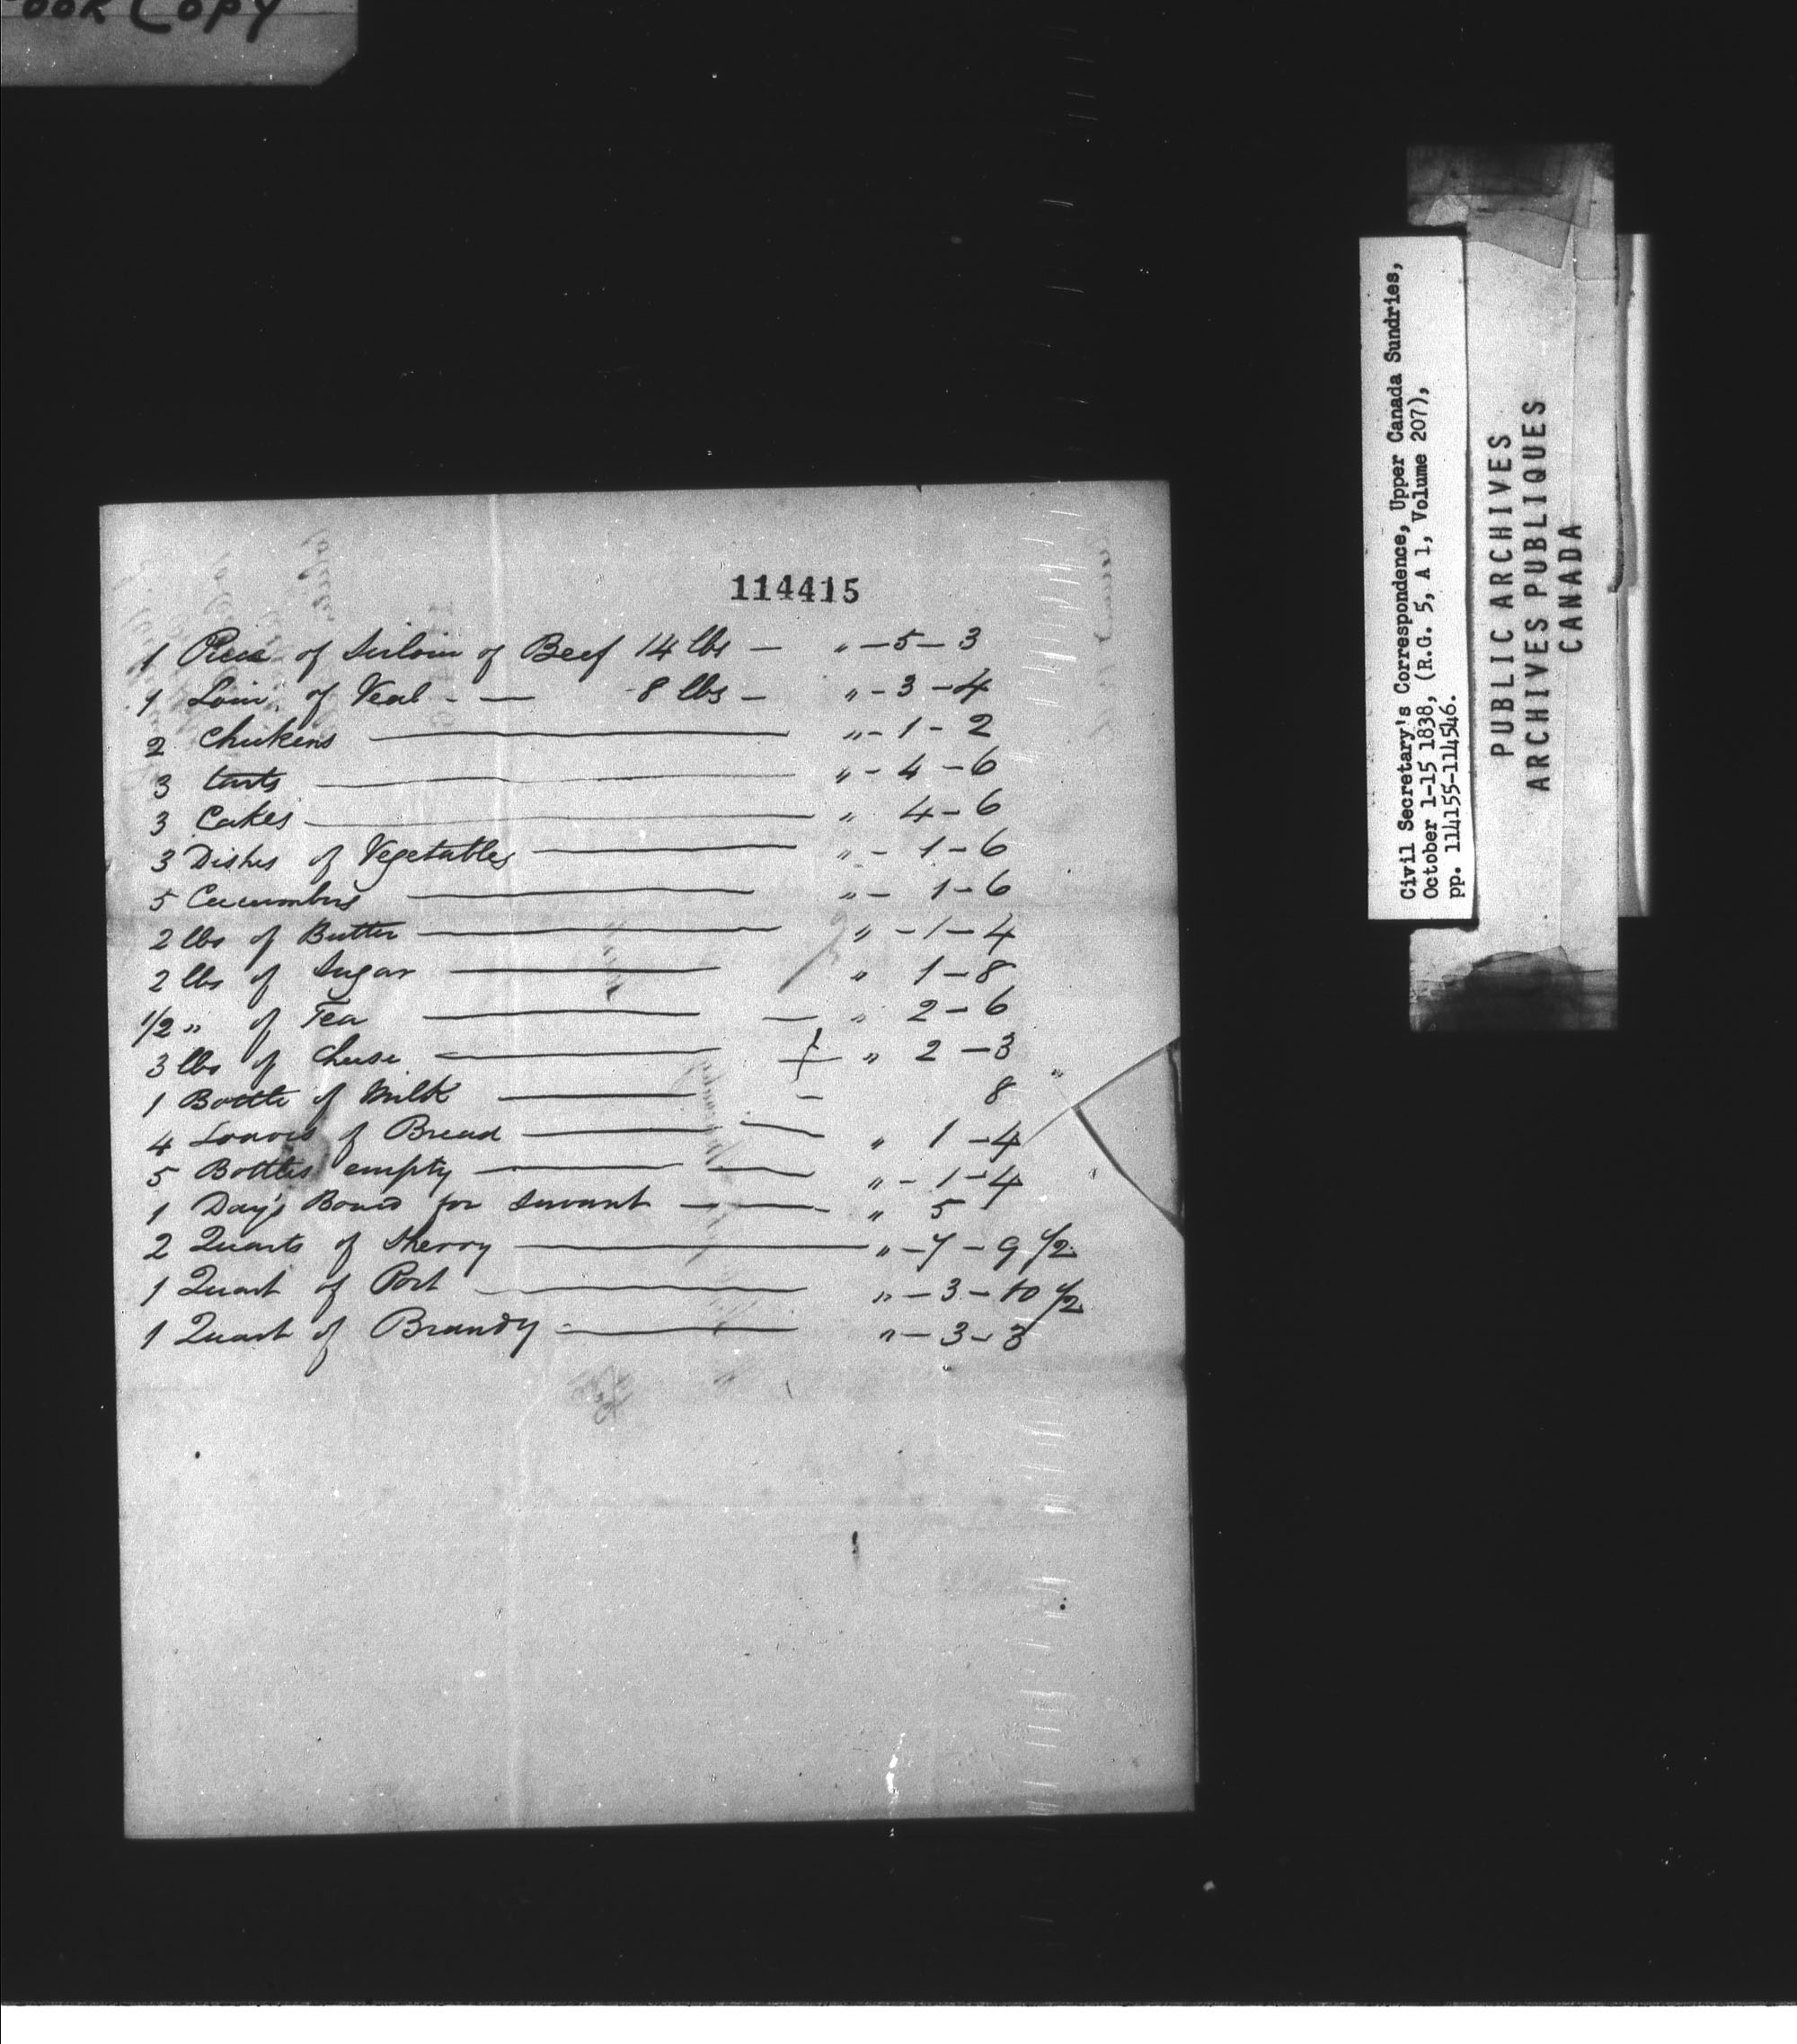 ook Copy
114415
1 Piece of Surloin of Beef 14 lbs — " — 5 — 3
1 Loin of Veal - — 8 lbs — " - 3 - 4
2 Chickens — " - 1 - 2
3 tarts — " - 4 - 6
3 Cakes — " 4 - 6
3 Dishes of Vegetables — " - 1 - 6
5 Cucumbers — " - 1 - 6
2 lbs of Butter — " - 1 - 4
2 lbs of Sugar — " 1 - 8
1/2 " of Tea — " 2 - 6
3 lbs of Cheese — " 2 - 3
1 Bottle of Milk — 8
4 Loaves of Bread — " 1 - 4
5 Bottles empty — " - 1 - 4
1 Day's Board for Servant — " 5
2 Quarts of Sherry — " - 7 - 9 1/2
1 Quart of Port — " - 3 - 10 1/2
1 Quart of Brandy — " - 3 - 3
Civil Secretary's Correspondence, Upper Canada Sundries,
October 1-15 1838, (R.G. 5, A 1, Volume 207),
pp. 114155-114546.
PUBLIC ARCHIVES
ARCHIVES PUBLIQUES
CANADA